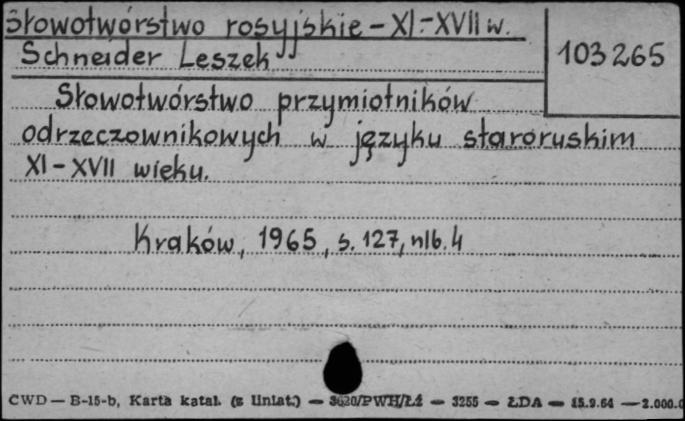 Słowotwórstwo rosyjskie - XI-XVII w.
Schneider Leszek
103265
Słowotwórstwo przymiotników
odrzeczownikowych w języku staroruskim
XI - XVII wieku.
Kraków, 1965, s. 127, nlb. 4
CWD — B-15-b, Karta katal. (z liniat.) — 3620/PWH/Łź — 3255 — ŁDA — 15.9.64 — 2.000.0